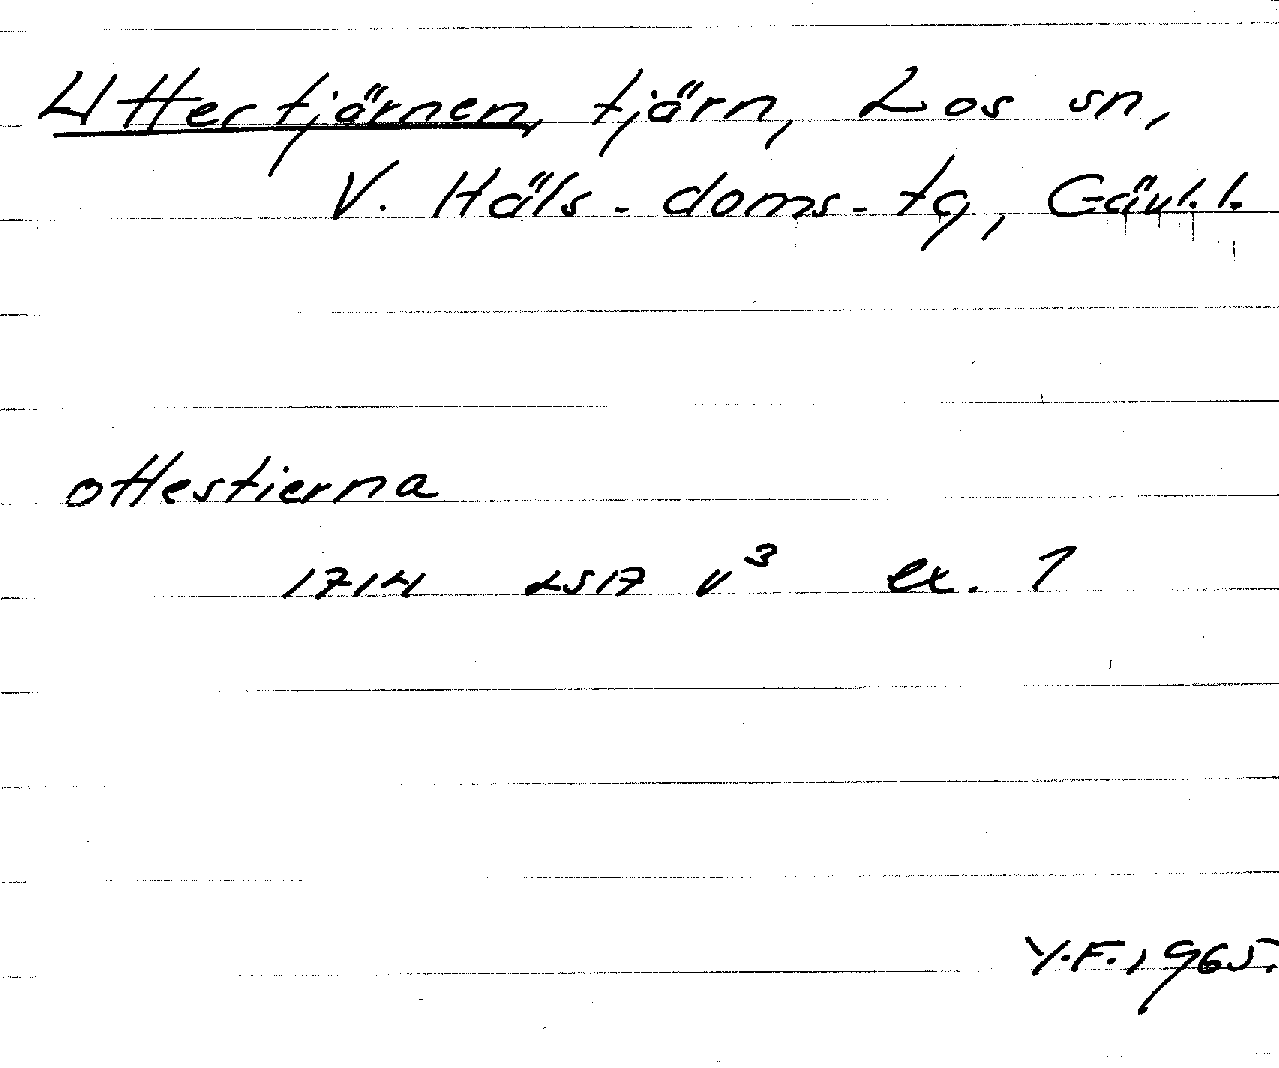 Uttertjärnen, tjärn, Los sn,
V. Häls. doms. tg, Gävl. l.
ottestierna
1714 LS17 v³ ex. 1
Y.F. 1965.